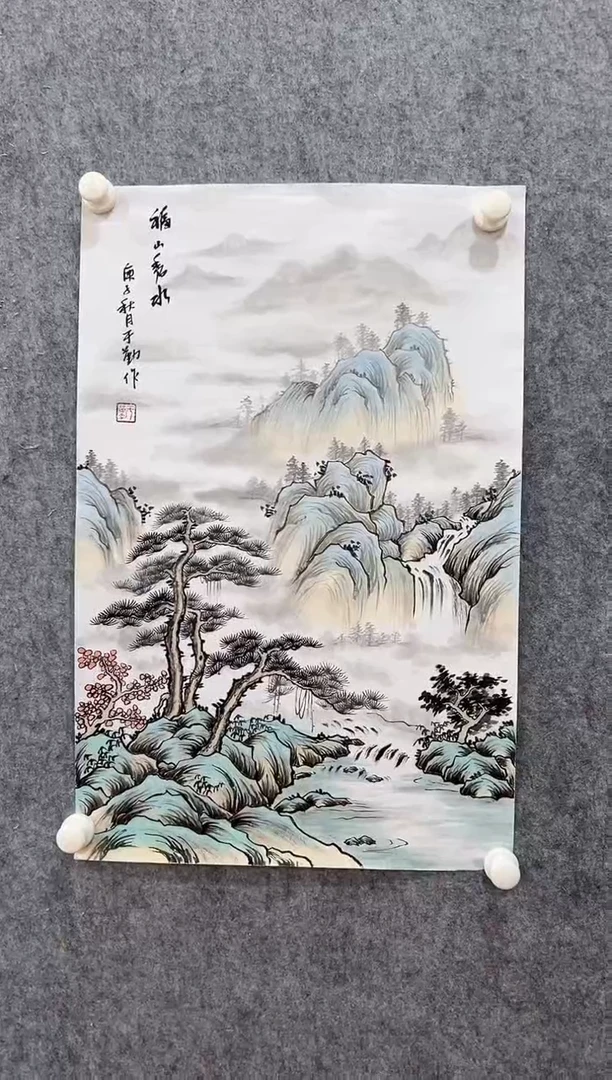 福山秀水
庚子秋月于勤作